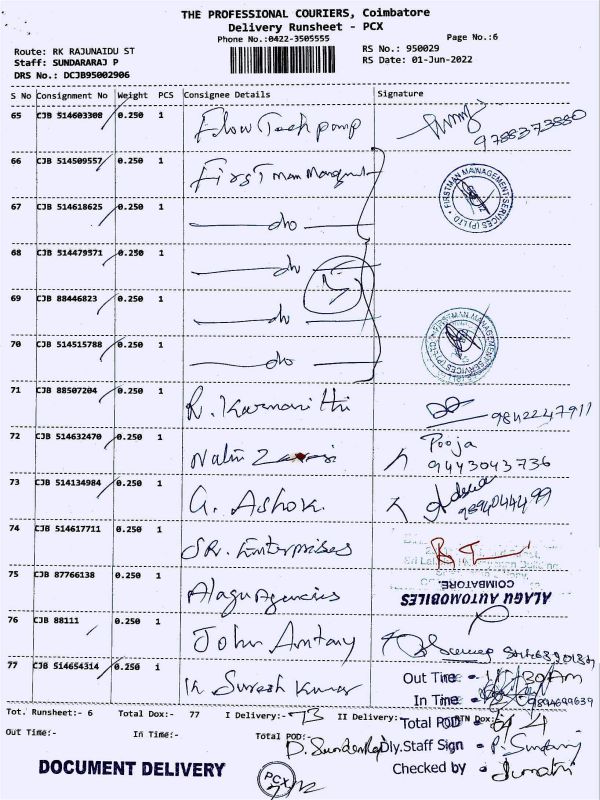 THE PROFESSIONAL COURIERS, Coimbatore
Delivery Runsheet - PCX
Phone No.:0422-3505555
Page No.:6
Route: RK RAJUNAIDU ST
RS No.: 950029
Staff: SUNDARARAJ P
RS Date: 01-Jun-2022
DRS No.: DCJB95002906
S No Consignment No Weight PCS Consignee Details Signature
65 CJB 514603308 0.250 1 Flow Tech pump 9788373880
66 CJB 514509557 0.250 1 First Man
FIRSTMAN MANAGEMENT SERVICES (P) LTD
67 CJB 514618625 0.250 1 do
68 CJB 514479571 0.250 1 do
5
69 CJB 88446823 0.250 1 do
70 CJB 514515788 0.250 1 do
FIRSTMAN MANAGEMENT SERVICES (P) LTD
71 CJB 88507204 0.250 1 R. Karnanithi 9842247911
72 CJB 514632470 0.250 1 Nalin Pooja
9443043736
73 CJB 514134984 0.250 1 G. Ashok.
9894044499
74 CJB 514617711 0.250 1 SR. Enterprises
75 CJB 87766138 0.250 1 Alagu Agencies
ALAGU AUTOMOBILES
COIMBATORE.
76 CJB 88111 0.250 1 John Antany
77 CJB 514654314 0.250 1 K Suresh Kumar
Out Time - 11.30Am
In Time - 9894699639
Tot. Runsheet:- 6 Total Dox:- 77 I Delivery:- 73 II Delivery:- RTN Dox:- 4
Total POD -
Out Time:- In Time:- Total POD:-
Dly.Staff Sign -
DOCUMENT DELIVERY
PCX
Checked by -